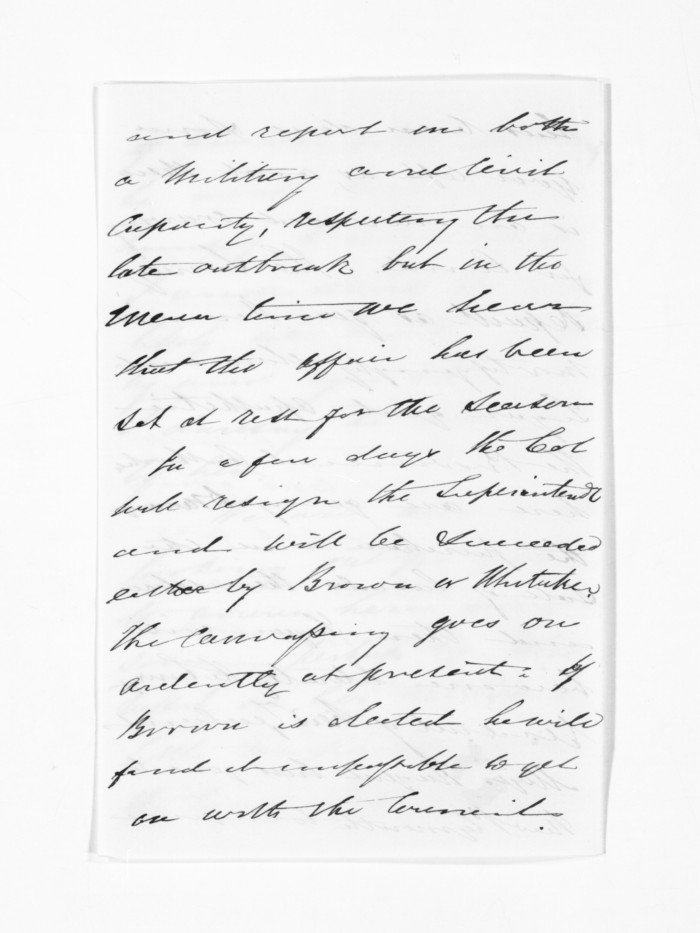 and report in both
a Military and Civil
Capacity, respecting the
late outbreak but in the
mean time we hear
that the affair has been
set at rest for the season
In a few days the Col
will resign the Superintendt
and will be succeeded
either by Brown or Whitaker.
The canvassing goes on
ardently at present. If
Brown is elected he will
find it impossible to get
on with the Council.